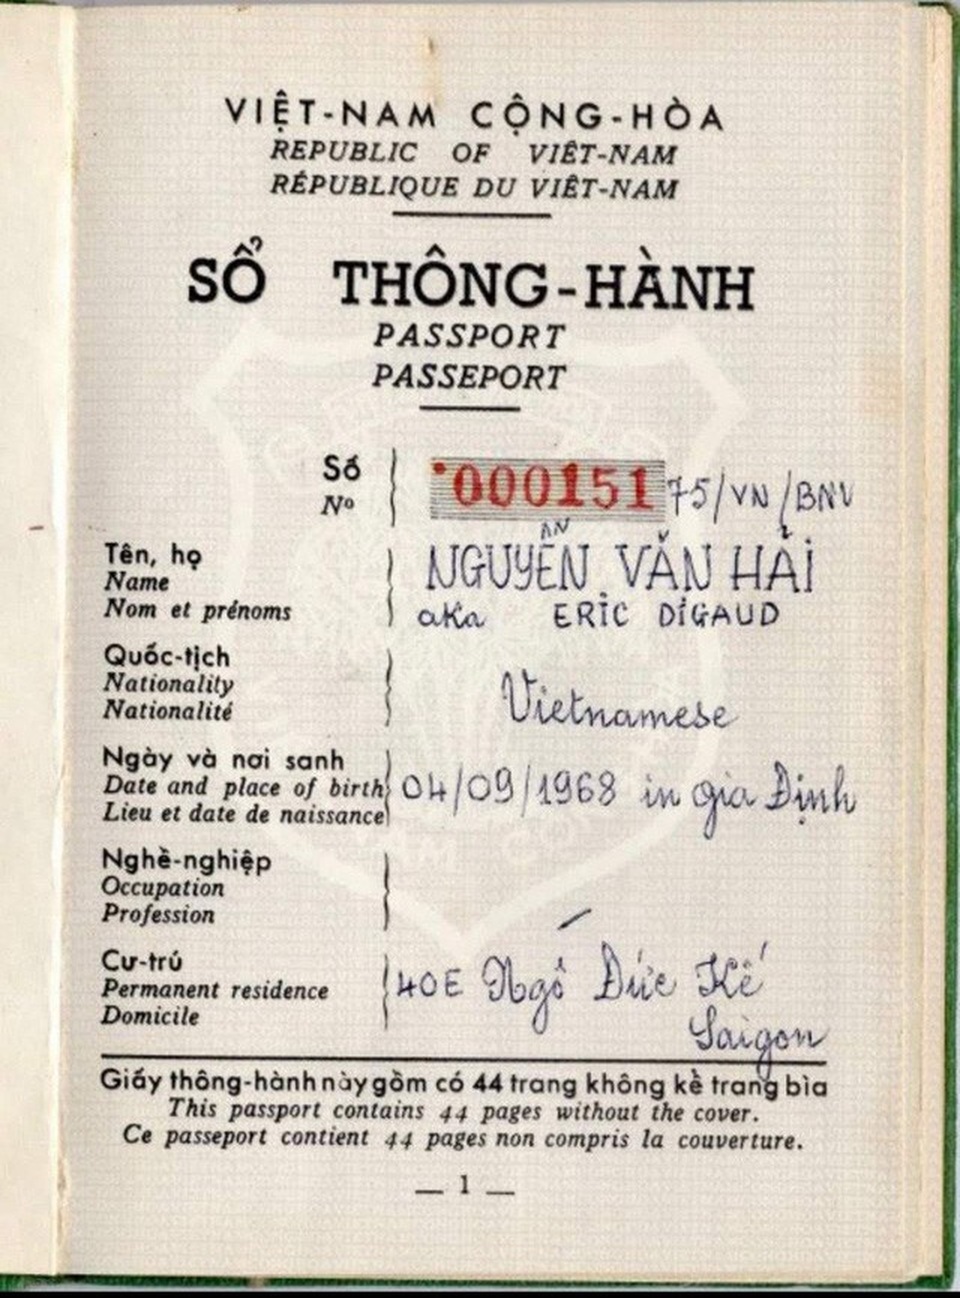 VIỆT-NAM CỘNG-HÒA
REPUBLIC OF VIÊT-NAM
RÉPUBLIQUE DU VIÊT-NAM
SỔ THÔNG-HÀNH
PASSPORT
PASSEPORT
Số
Nº
000151 75/VN/BNV
Tên, họ
Name
Nom et prénoms
NGUYỄN VĂN HẢI
aKa ERIC DIGAUD
Quốc-tịch
Nationality
Nationalité
Vietnamese
Ngày và nơi sanh
Date and place of birth
Lieu et date de naissance
04/09/1968 in gia Định
Nghề-nghiệp
Occupation
Profession
Cư-trú
Permanent residence
Domicile
40E Ngô Đức Kế
Saigon
Giấy thông-hành này gồm có 44 trang không kể trang bìa
This passport contains 44 pages without the cover.
Ce passeport contient 44 pages non compris la couverture.
— 1 —